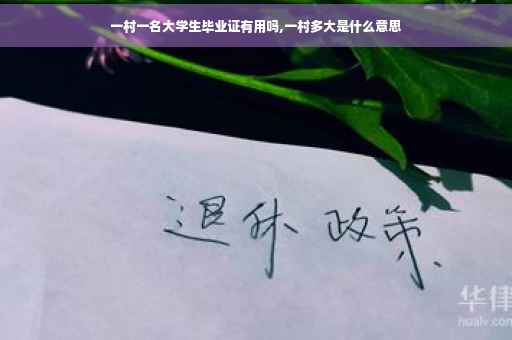 一村一名大学生毕业证有用吗,一村多大是什么意思
退休 政策
华律
hualv.com